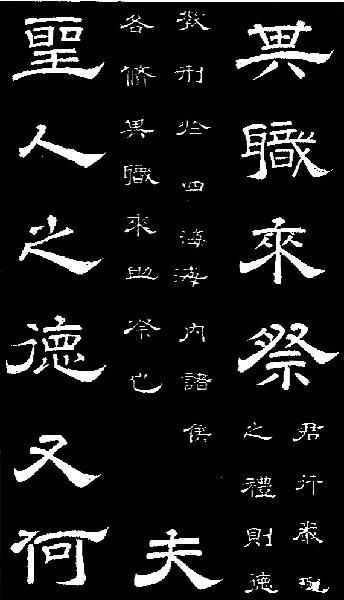 其職來祭
君行嚴配
之禮則德
教刑於四海海内諸侯
各脩其職來助祭也
夫
聖人之德又何